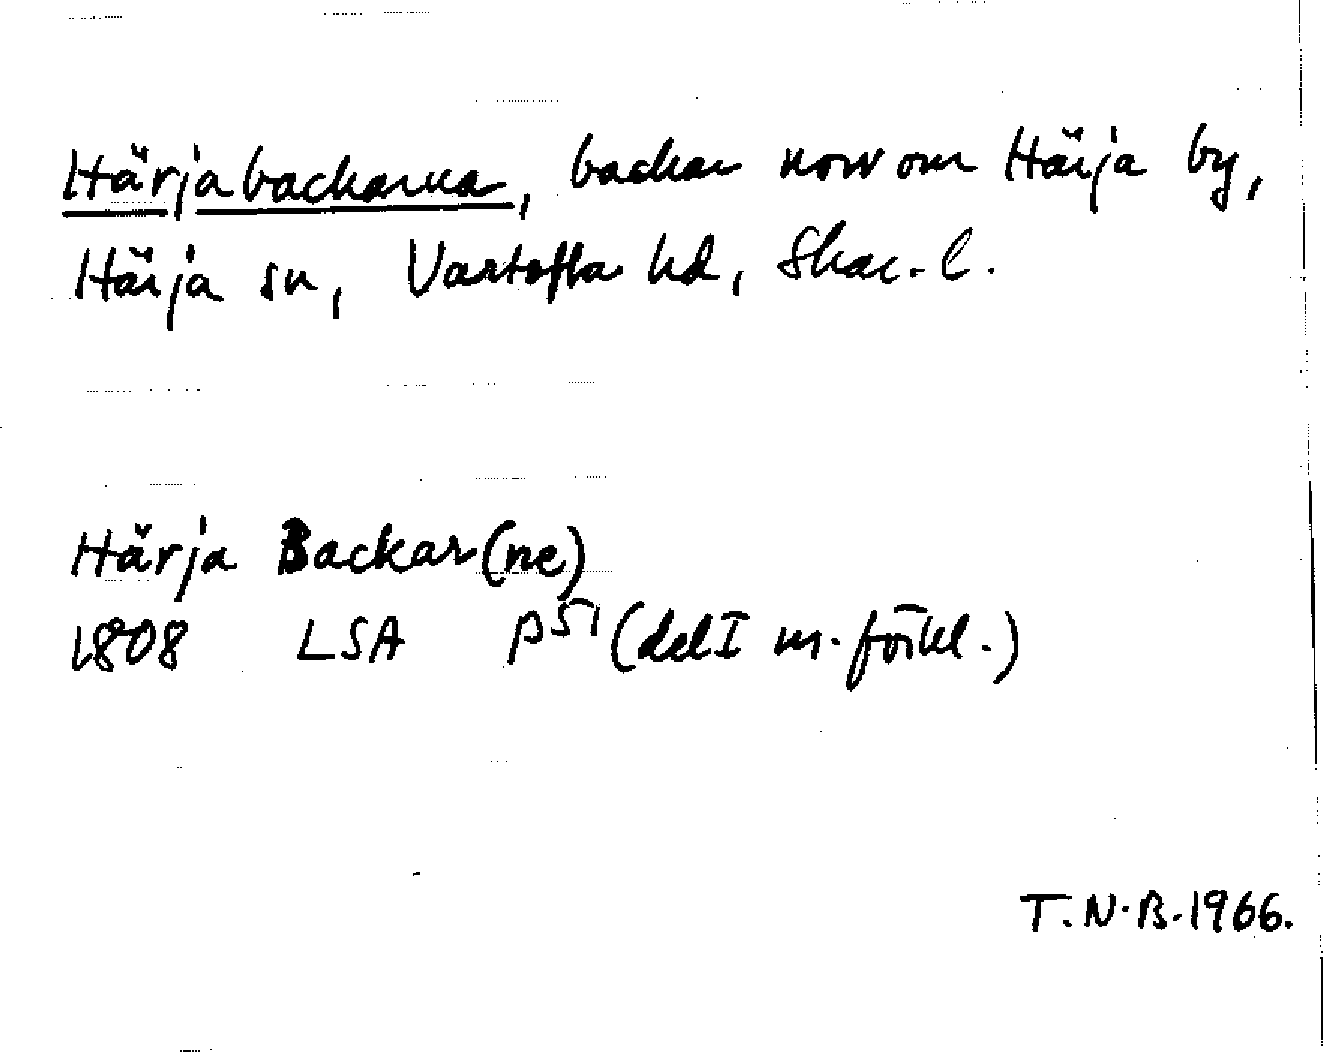 Härjabackarna, backar norr om Härja by,
Härja sn, Vartofta hd, Skar. l.
Härja Backar(ne)
1808 LSA P51 (del I m. förkl.)
T.N.B. 1966.